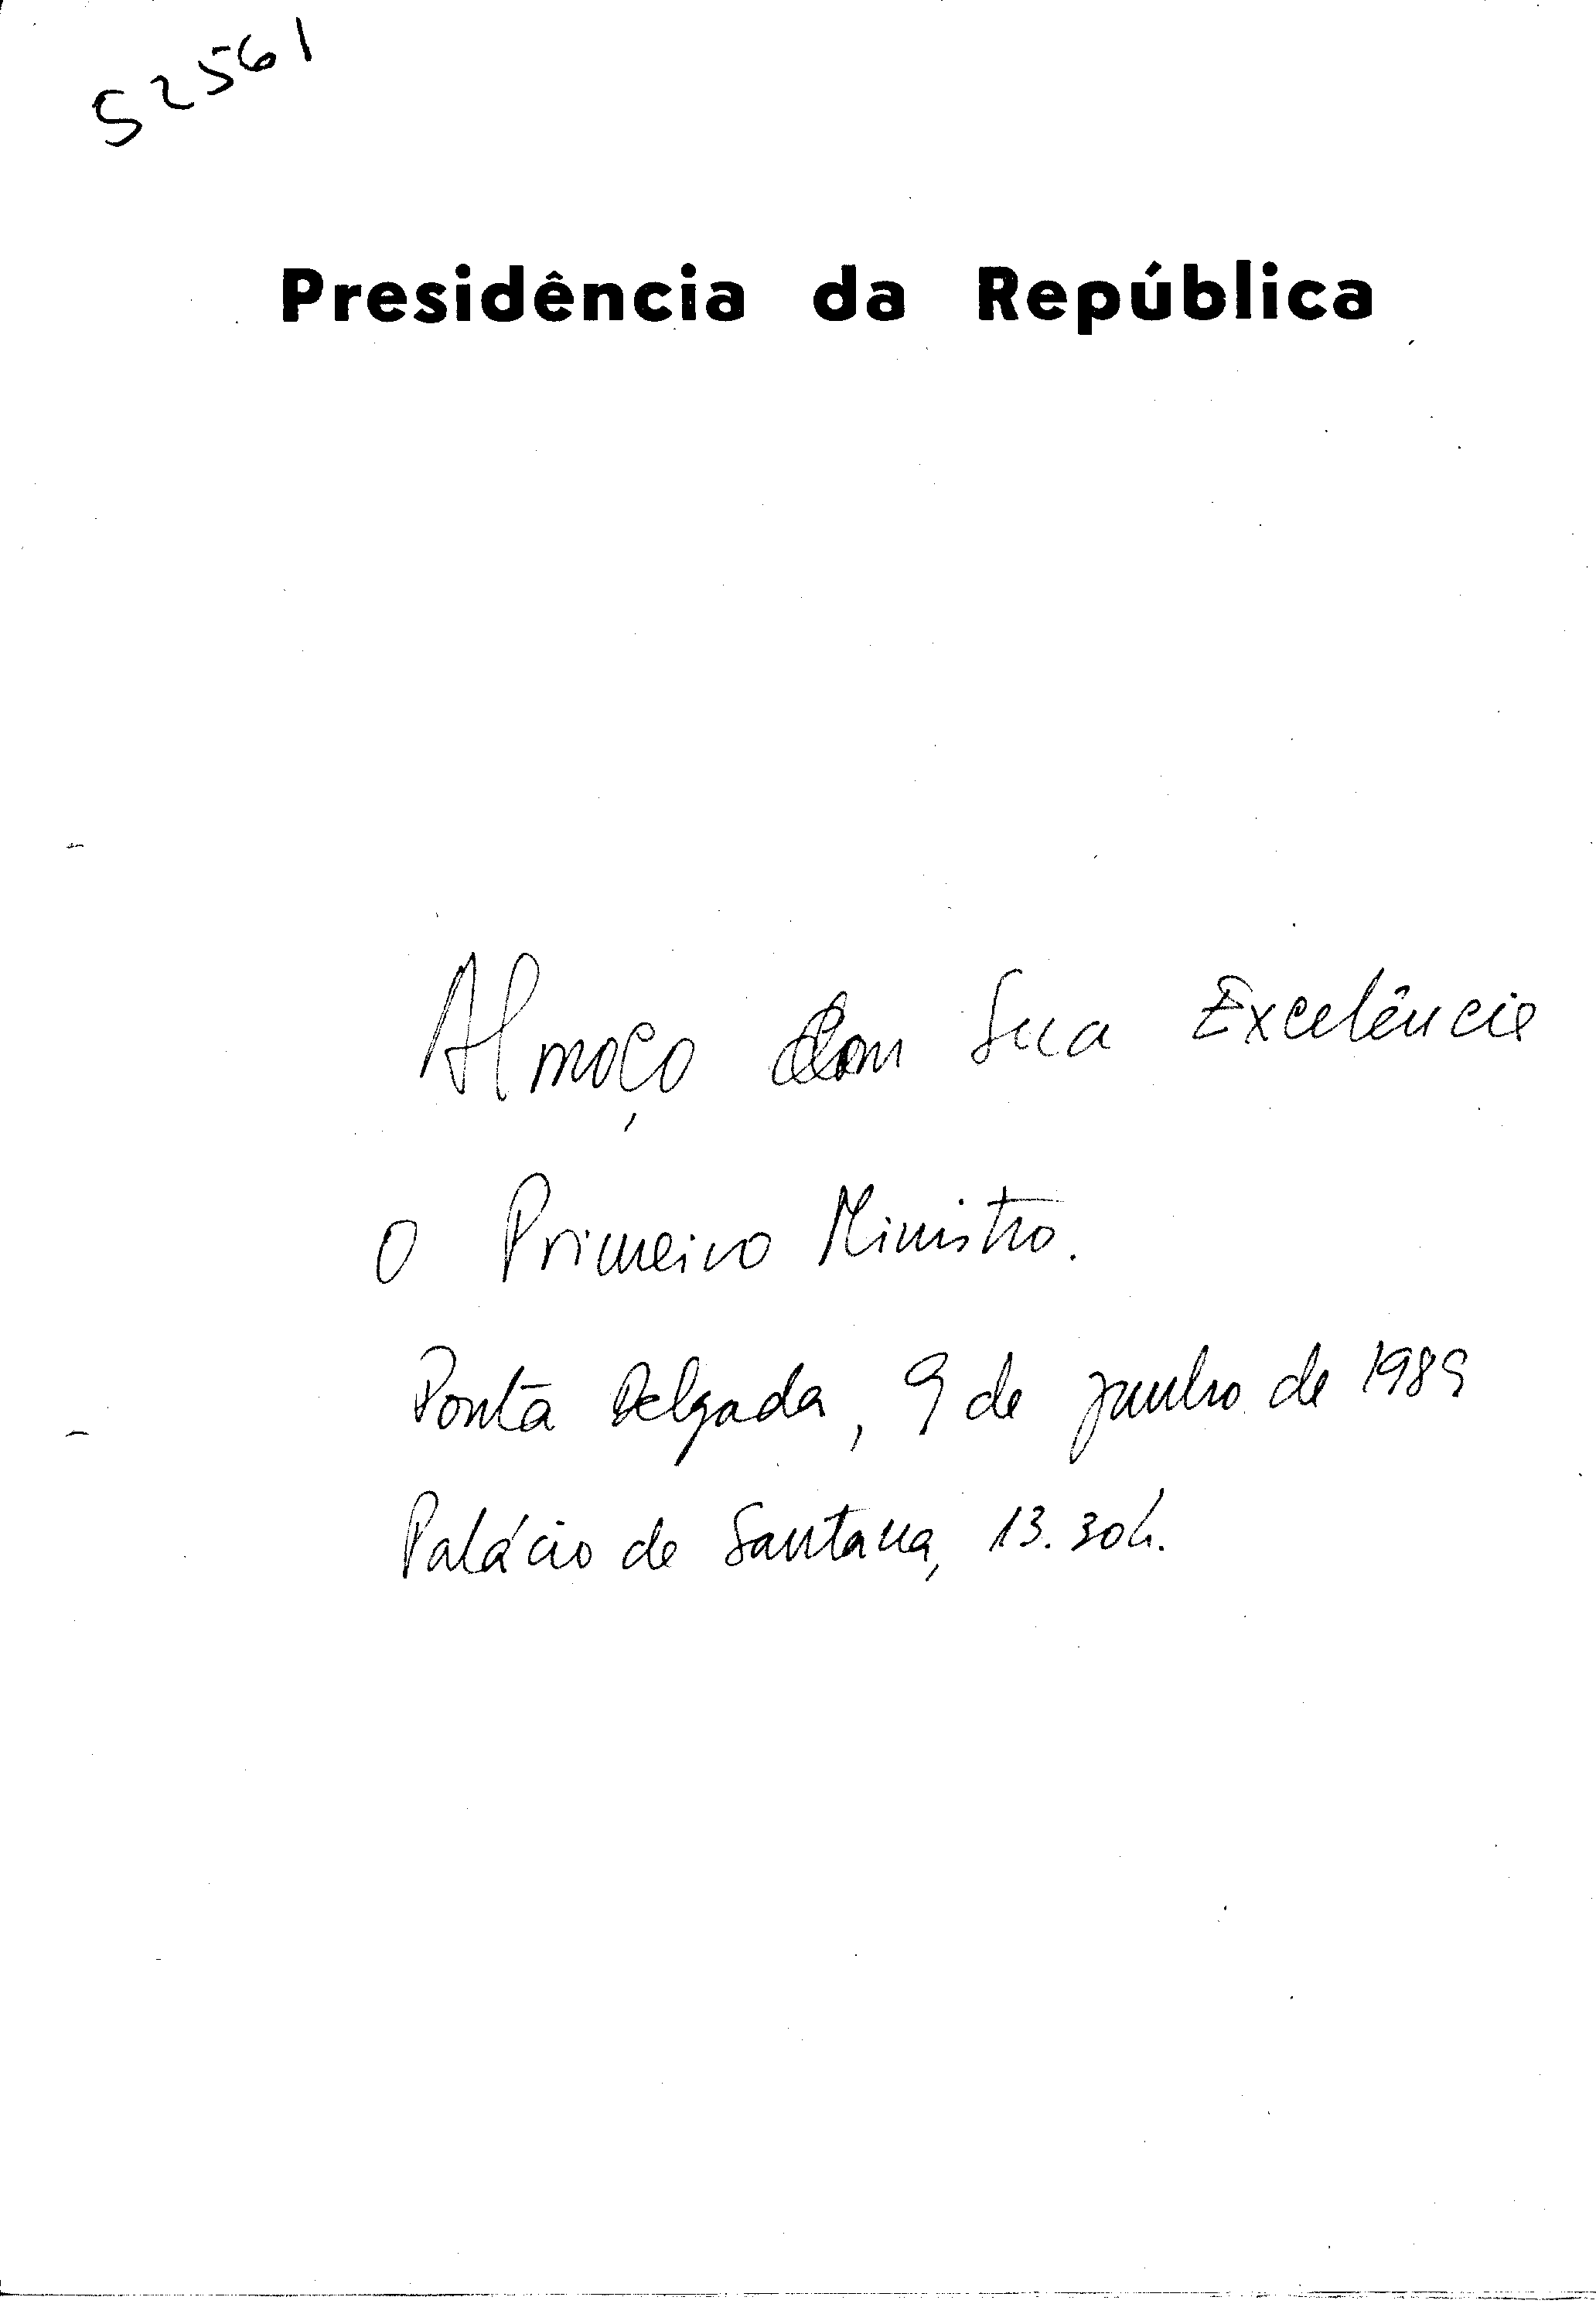 52561
Presidência da República
Almoço com Sua Excelência
o Primeiro Ministro.
Ponta Delgada, 9 de junho de 1989
Palácio de Santana, 13.30h.